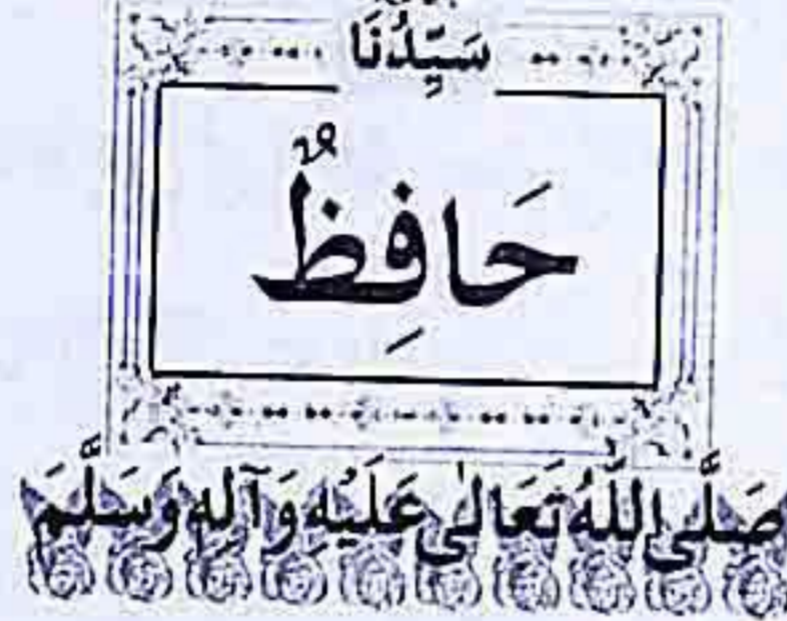 سَيِّدُنَا
حَافِظٌ
صَلَّى اللّٰهُ تَعَالٰى عَلَيْهِ وَآلِهٖ وَسَلَّمَ